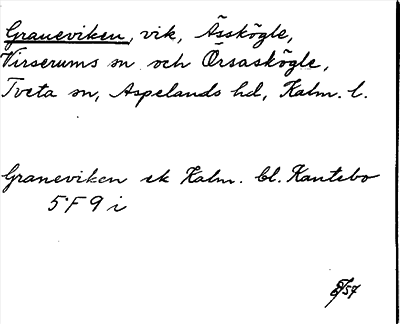 Graneviken, vik, Åsskögle,
Virserums sn och Örsaskögle,
Tveta sn, Aspelands hd, Kalm. l.
Graneviken ek Kalm. bl. Kantebo
5 F 9 i
/57